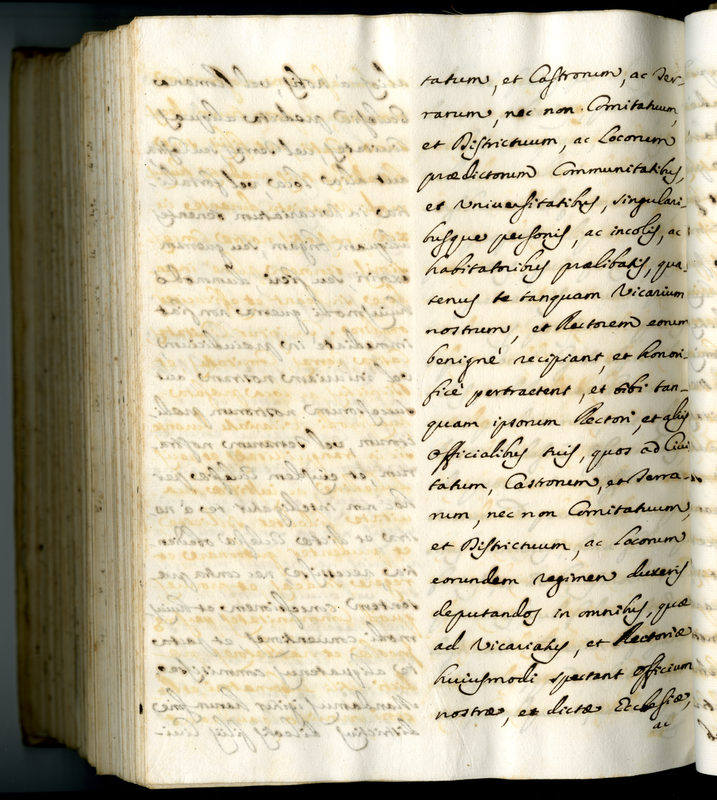 tatum, et Castrorum, ac Ter-
rarum, nec non Comitatuum,
et Districtuum, ac Locorum
prædictorum Communitatibus,
et Universitatibus, singulari-
busque personis, ac incolis, ac
habitatoribus prælibatis, qua-
tenus te tanquam Vicarium
nostrum, et Rectorem eorum
benignè recipiant, et honori-
ficè pertractent, et tibi tan-
quam ipsorum Rectori, et aliis
Officialibus tuis, quos ad Civi
tatum, Castrorum, et Terra-
rum, nec non Comitatuum,
et Districtuum, ac Locorum
eorundem regimen duxeris
deputandos in omnibus, quæ
ad Vicariatus, et Rectoriæ
huiusmodi spectant officium
nostræ, et dictæ Ecclesiæ,
ac